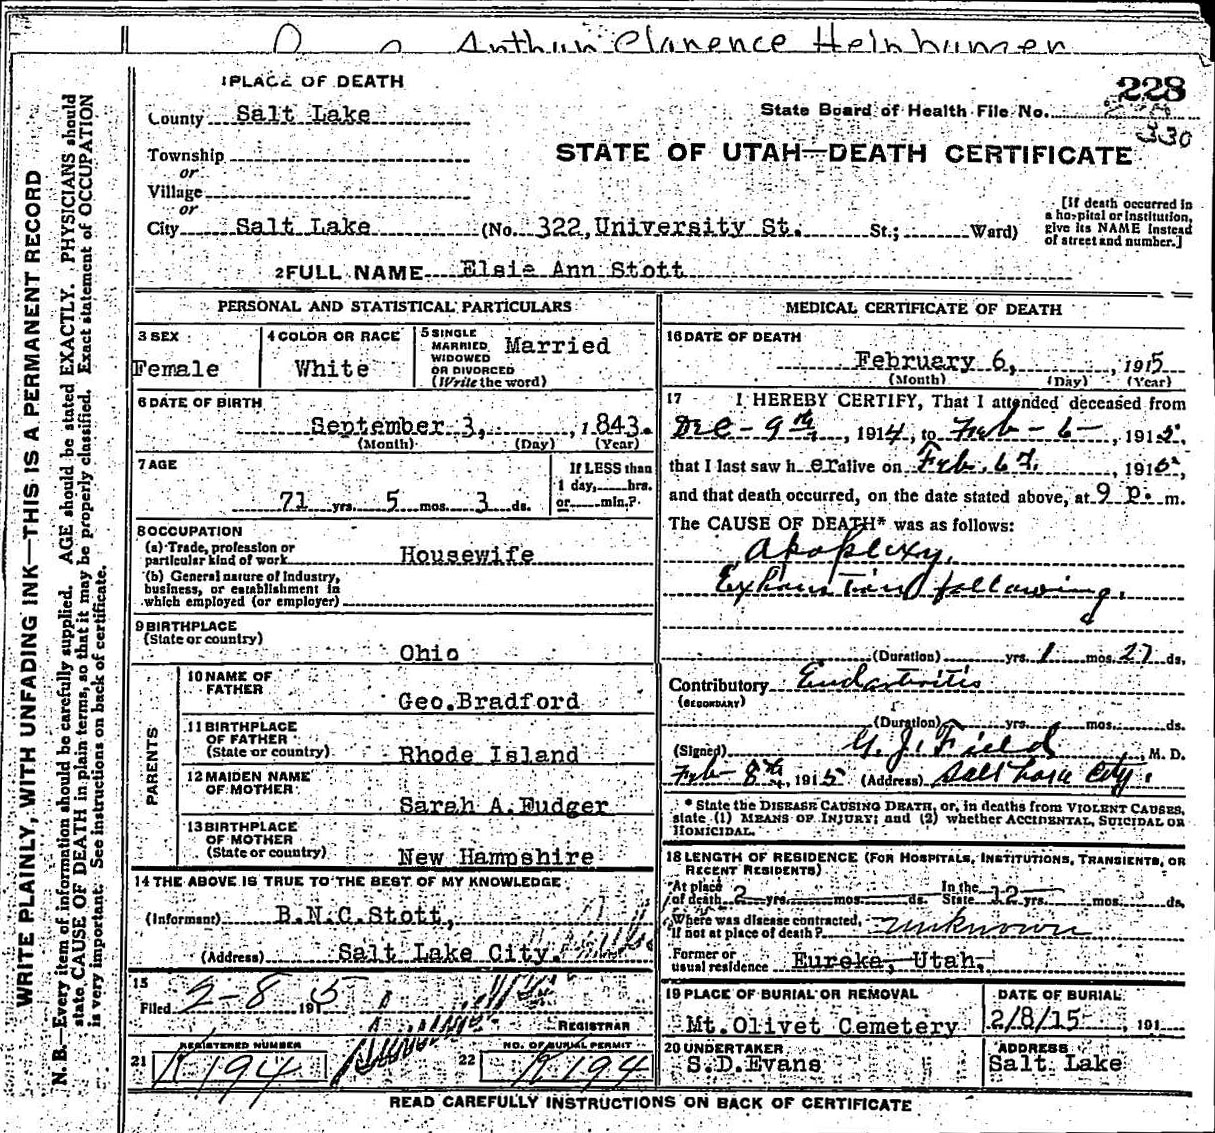 Arthur Clarence Heinbunger
1 PLACE OF DEATH
228
County Salt Lake
State Board of Health File No.
330
Township
STATE OF UTAH—DEATH CERTIFICATE
or
Village
or
City Salt Lake (No. 322, University St. St.; Ward)
[If death occurred in
a hospital or institution,
give its NAME instead
of street and number.]
2 FULL NAME Elsie Ann Stott
PERSONAL AND STATISTICAL PARTICULARS
3 SEX
Female
4 COLOR OR RACE
White
5 SINGLE
MARRIED
WIDOWED
OR DIVORCED
(Write the word)
Married
6 DATE OF BIRTH
September 3, , 1843.
(Month) (Day) (Year)
7 AGE
71 yrs. 5 mos. 3 ds.
If LESS than
1 day, hrs.
or min.?
8 OCCUPATION
(a) Trade, profession or
particular kind of work Housewife
(b) General nature of Industry,
business, or establishment in
which employed (or employer)
9 BIRTHPLACE
(State or country)
Ohio
PARENTS
10 NAME OF
FATHER
Geo.Bradford
11 BIRTHPLACE
OF FATHER
(State or country) Rhode Island
12 MAIDEN NAME
OF MOTHER
Sarah A.Fudger
13 BIRTHPLACE
OF MOTHER
(State or country) New Hampshire
14 THE ABOVE IS TRUE TO THE BEST OF MY KNOWLEDGE
(Informant) B.N.C.Stott,
(Address) Salt Lake City.
15
Filed 2-8 1915
REGISTRAR
21 REGISTERED NUMBER
K194
22 NO. OF BURIAL PERMIT
K194
MEDICAL CERTIFICATE OF DEATH
16 DATE OF DEATH
February 6, , 1915
(Month) (Day) (Year)
17 I HEREBY CERTIFY, That I attended deceased from
Dec - 9th, 1914, to Feb - 6 -, 1915,
that I last saw her alive on Feb. 6th, 1915,
and that death occurred, on the date stated above, at 9 p. m.
The CAUSE OF DEATH* was as follows:
Apoplexy.
Exhaustion following.
(Duration) yrs. 1 mos. 27 ds.
Contributory Endarteritis
(SECONDARY)
(Duration) yrs. mos. ds.
(Signed) G. J. Field M. D.
Feb - 8th, 1915 (Address) Salt Lake City.
* State the DISEASE CAUSING DEATH, or, in deaths from VIOLENT CAUSES,
state (1) MEANS OF INJURY; and (2) whether ACCIDENTAL, SUICIDAL OR
HOMICIDAL.
18 LENGTH OF RESIDENCE (FOR HOSPITALS, INSTITUTIONS, TRANSIENTS, OR
RECENT RESIDENTS)
At place
of death 2 yrs. mos. ds. In the
State 12 yrs. mos. ds.
Where was disease contracted,
if not at place of death? unknown
Former or
usual residence Eureka, Utah.
19 PLACE OF BURIAL OR REMOVAL
Mt.Olivet Cemetery
DATE OF BURIAL
2/8/15 , 191
20 UNDERTAKER
S.D.Evans
ADDRESS
Salt Lake
READ CAREFULLY INSTRUCTIONS ON BACK OF CERTIFICATE
WRITE PLAINLY, WITH UNFADING INK—THIS IS A PERMANENT RECORD
N. B.—Every item of information should be carefully supplied. AGE should be stated EXACTLY. PHYSICIANS should
state CAUSE OF DEATH in plain terms, so that it may be properly classified. Exact statement of OCCUPATION
is very important. See instructions on back of certificate.